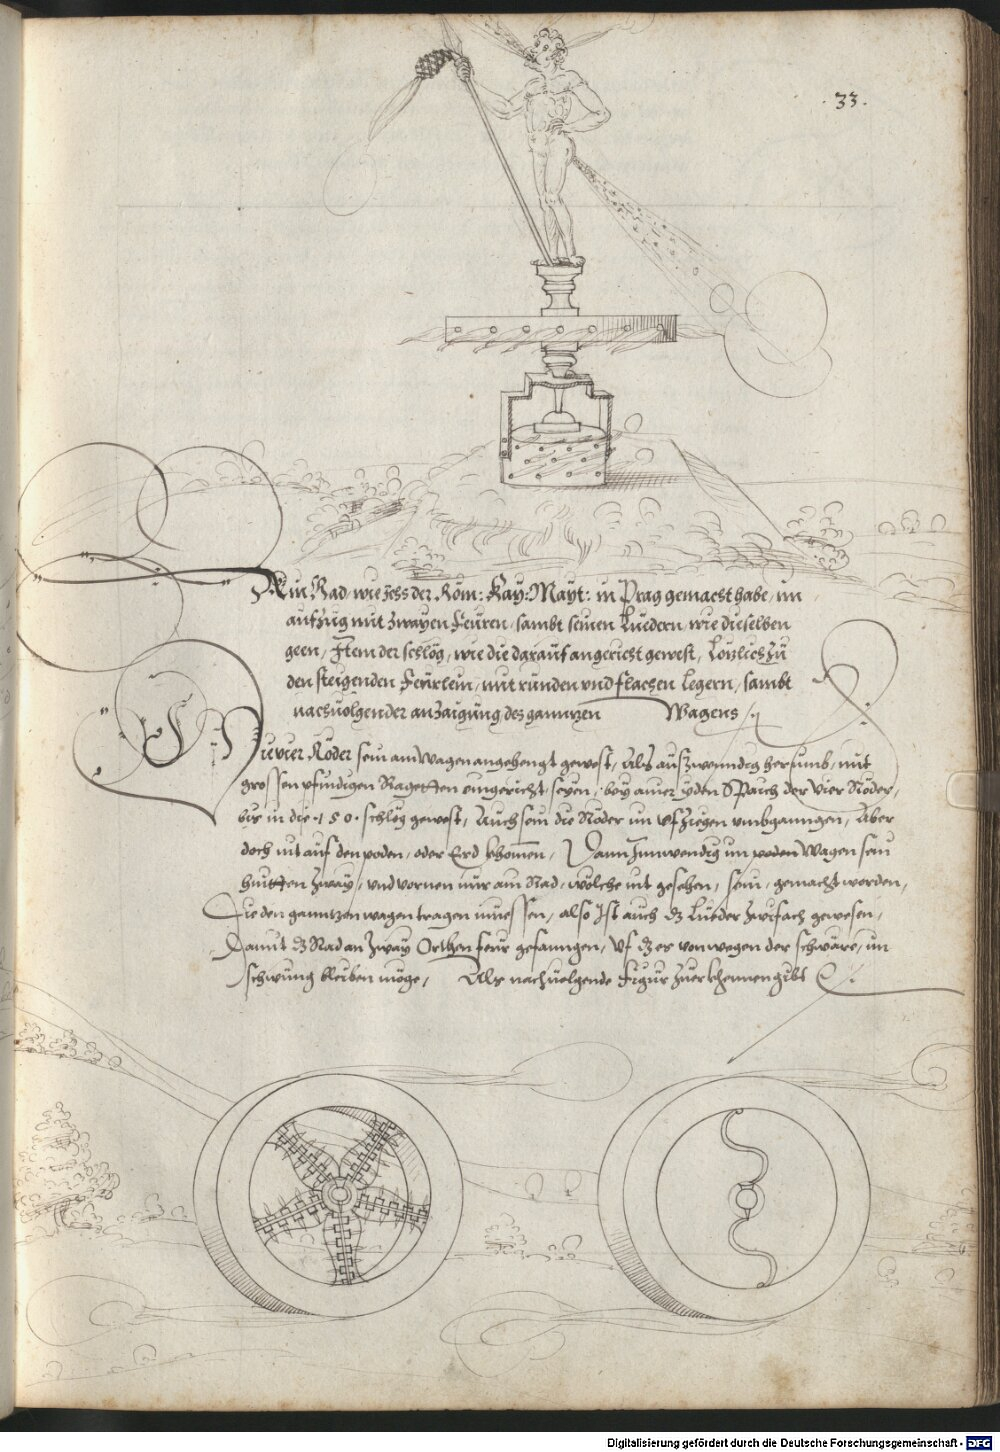 .33.
Ain Rad, wie ichs der Röm: Kay: Mayt: in Prag gemacht habe, im
aufzug mit zwayen Feüren, sambt seinen Luedern, wie dieselben
geen, Item der schlög, wie die darauf angericht gewest, Lötzlich zü
den steigenden Feürlein, mit runden vnd flachen legern, sambt
nachuolgender anzaigüng des ganntzen Wagens
Die vier Röder sein am Wagen angehengt gewest, Als auszwenndig herumb, mit
grossen pfündigen Ragetten eingericht, seyen, bey ainer yden Spaich der vier Röder,
bis in die .150. schlög gewest, Auch sein die Röder im vfziehen vmbganngen, Aber
doch nit auf den poden, oder Erd khomen, Dann Innwendig im poden Wagen sein
hintten zway, vnd vornen nür ain Rad, wölche nit gesehen, sein, gemacht worden,
Die den ganntzen wagen tragen müessen, also Ist auch dz Lüeder zwifach gewesen,
Damit dz Rad an zway Orthen feür gefanngen, Vf dz es von wegen der schwäre, im
schwüng bleiben möge, Als nachuolgende Figur zuerkhennen gibt
Digitalisierung gefördert durch die Deutsche Forschungsgemeinschaft - DFG